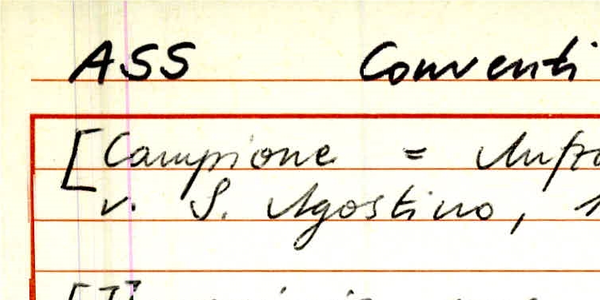 ASS Conventi
[Campione =
v. S. Agostino,